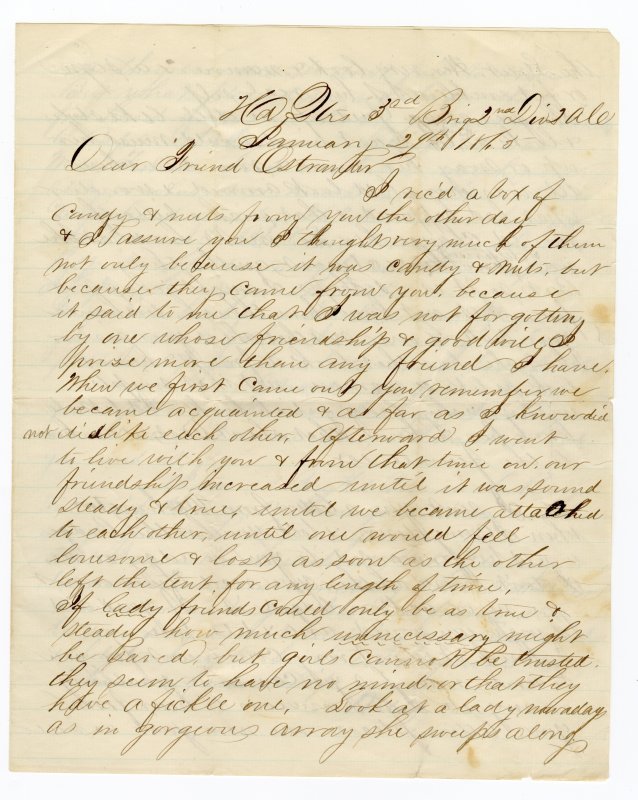 Hd Qtrs 3rd Brig 2nd Div 2 A C
January 29th 186
Dear Friend Ostrander
I rec'd a box of
candy & nuts from you the other day
& I assure you I thought very much of them
not only because it was candy & nuts, but
because they came from you. because
it said to me that I was not forgotten
by one whose friendship & good will I
prise more than any friend I have.
When we first came out you remember we
became acquainted & as far as I know did
not dislike each other. Afterward I went
to live with you & from that time on our
friendship increased until it was sound
steady & true, until we became attached
to each other, until one would feel
lonesome & lost as soon as the other
left the tent for any length of time.
If lady friends could only be as true &
steady how much unnecissary might
be saved, but girls cannot be trusted.
they seem to have no mind. or that they
have a fickle one. Look at a lady nowadays
as in gorgeous array she sweeps along